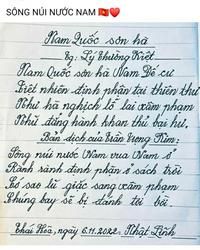 SÔNG NÚI NƯỚC NAM 🇻🇳❤️
Nam Quốc sơn hà
Tg: Lý Thường Kiệt
Nam Quốc sơn hà Nam Đế cư
Tiệt nhiên định phận tại thiên thư
Như hà nghịch lỗ lai xâm phạm
Nhữ đẳng hành khan thủ bại hư.
Bản dịch của Trần Trọng Kim:
Sông núi nước Nam vua Nam ở
Rành rành định phận ở sách trời
Cớ sao lũ giặc sang xâm phạm
Chúng bay sẽ bị đánh tơi bời.
Thái Hòa, ngày 6.11.2022. Nhật Linh